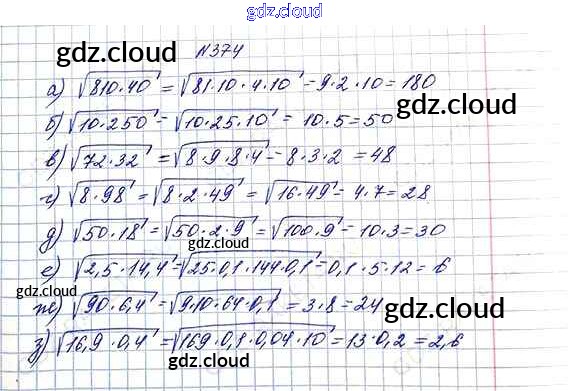 gdz.cloud
gdz.cloud
№374
gdz.cloud
а) √810·40 = √81·10·4·10 = 9·2·10 = 180
gdz.cloud
б) √10·250 = √10·25·10 = 10·5 = 50
в) √72·32 = √8·9·8·4 = 8·3·2 = 48
gdz.cloud
г) √8·98 = √8·2·49 = √16·49 = 4·7 = 28
д) √50·18 = √50·2·9 = √100·9 = 10·3 = 30
gdz.cloud
е) √2,5·14,4 = √25·0,1·144·0,1 = 0,1·5·12 = 6
gdz.cloud
ж) √90·6,4 = √9·10·64·0,1 = 3·8 = 24
gdz.cloud
з) √16,9·0,4 = √169·0,1·0,04·10 = 13·0,2 = 2,6
gdz.cloud